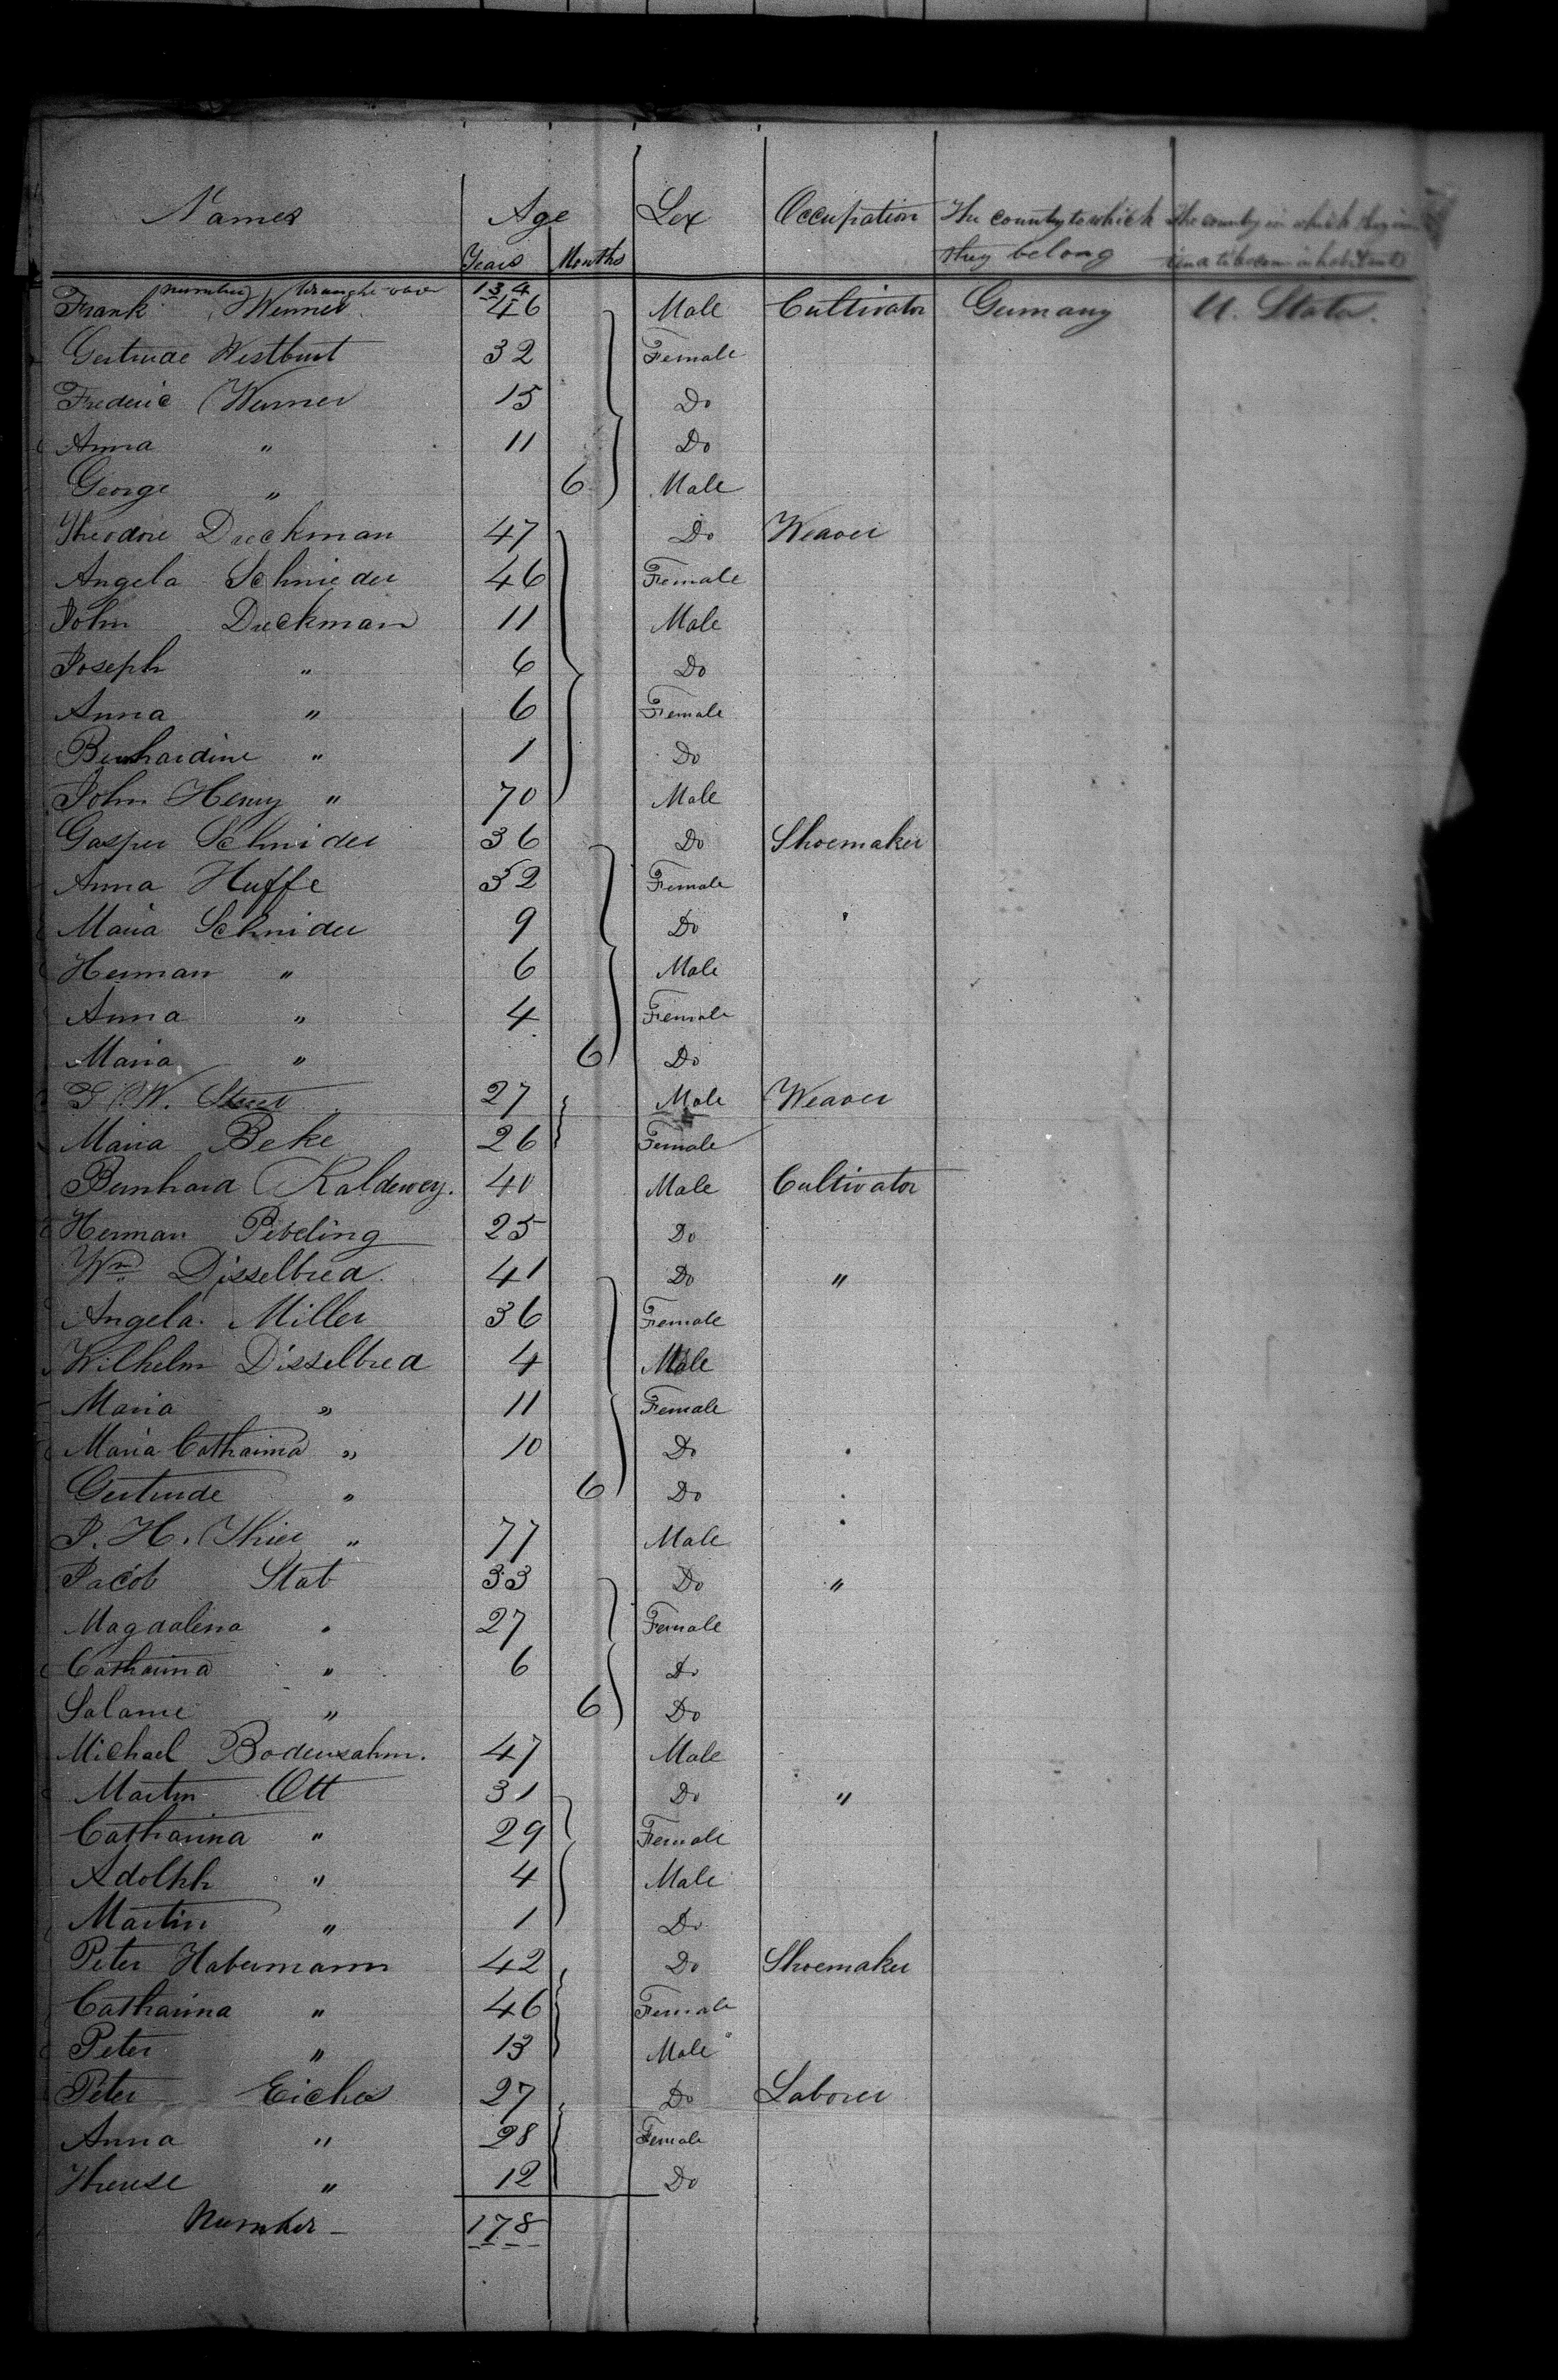 Names Age Sex Occupation The country to which The country in which they in
Years Months they belong tend to become inhabitants
Number brought over 134
Frank Werner 46 Male Cultivator Germany U. States.
Gertrude Westbust 32 Female
Frederic Werner 15 Do
Anna " 11 Do
George " 6 Male
Theodore Dieckman 47 Do Weaver
Angela Schnieder 46 Female
John Dieckman 11 Male
Joseph " 6 Do
Anna " 6 Female
Bernhardine " 1 Do
John Henry " 70 Male
Gasper Schnider 36 Do Shoemaker
Anna Huffe 32 Female
Maria Schnider 9 Do
Herman " 6 Male
Anna " 4 Female
Maria " 6 Do
W. 27 Male Weaver
Maria Beke 26 Female
Bernhard Kaldewey. 40 Male Cultivator
Herman 25 Do
Wm Disselbred. 41 Do "
Angela. Miller 36 Female
Wilhelm Disselbred 4 Male
Maria " 11 Female
Maria Catharina " 10 Do
Gertrude " 6 Do
J. H. Thier " 77 Male
Jacob Stab 33 Do "
Magdalena " 27 Female
Catharina " 6 Do
Salame " 6 Do
Michael Bodensahn. 47 Male
Martin Ott 31 Do "
Catharina " 29 Female
Adolph " 4 Male
Martin " 1 Do
Peter Habermann 42 Do Shoemaker
Catharina " 46 Female
Peter " 13 Male
Peter Eichos 27 Do Laborer
Anna " 28 Female
Therese " 12 Do
Number - 178